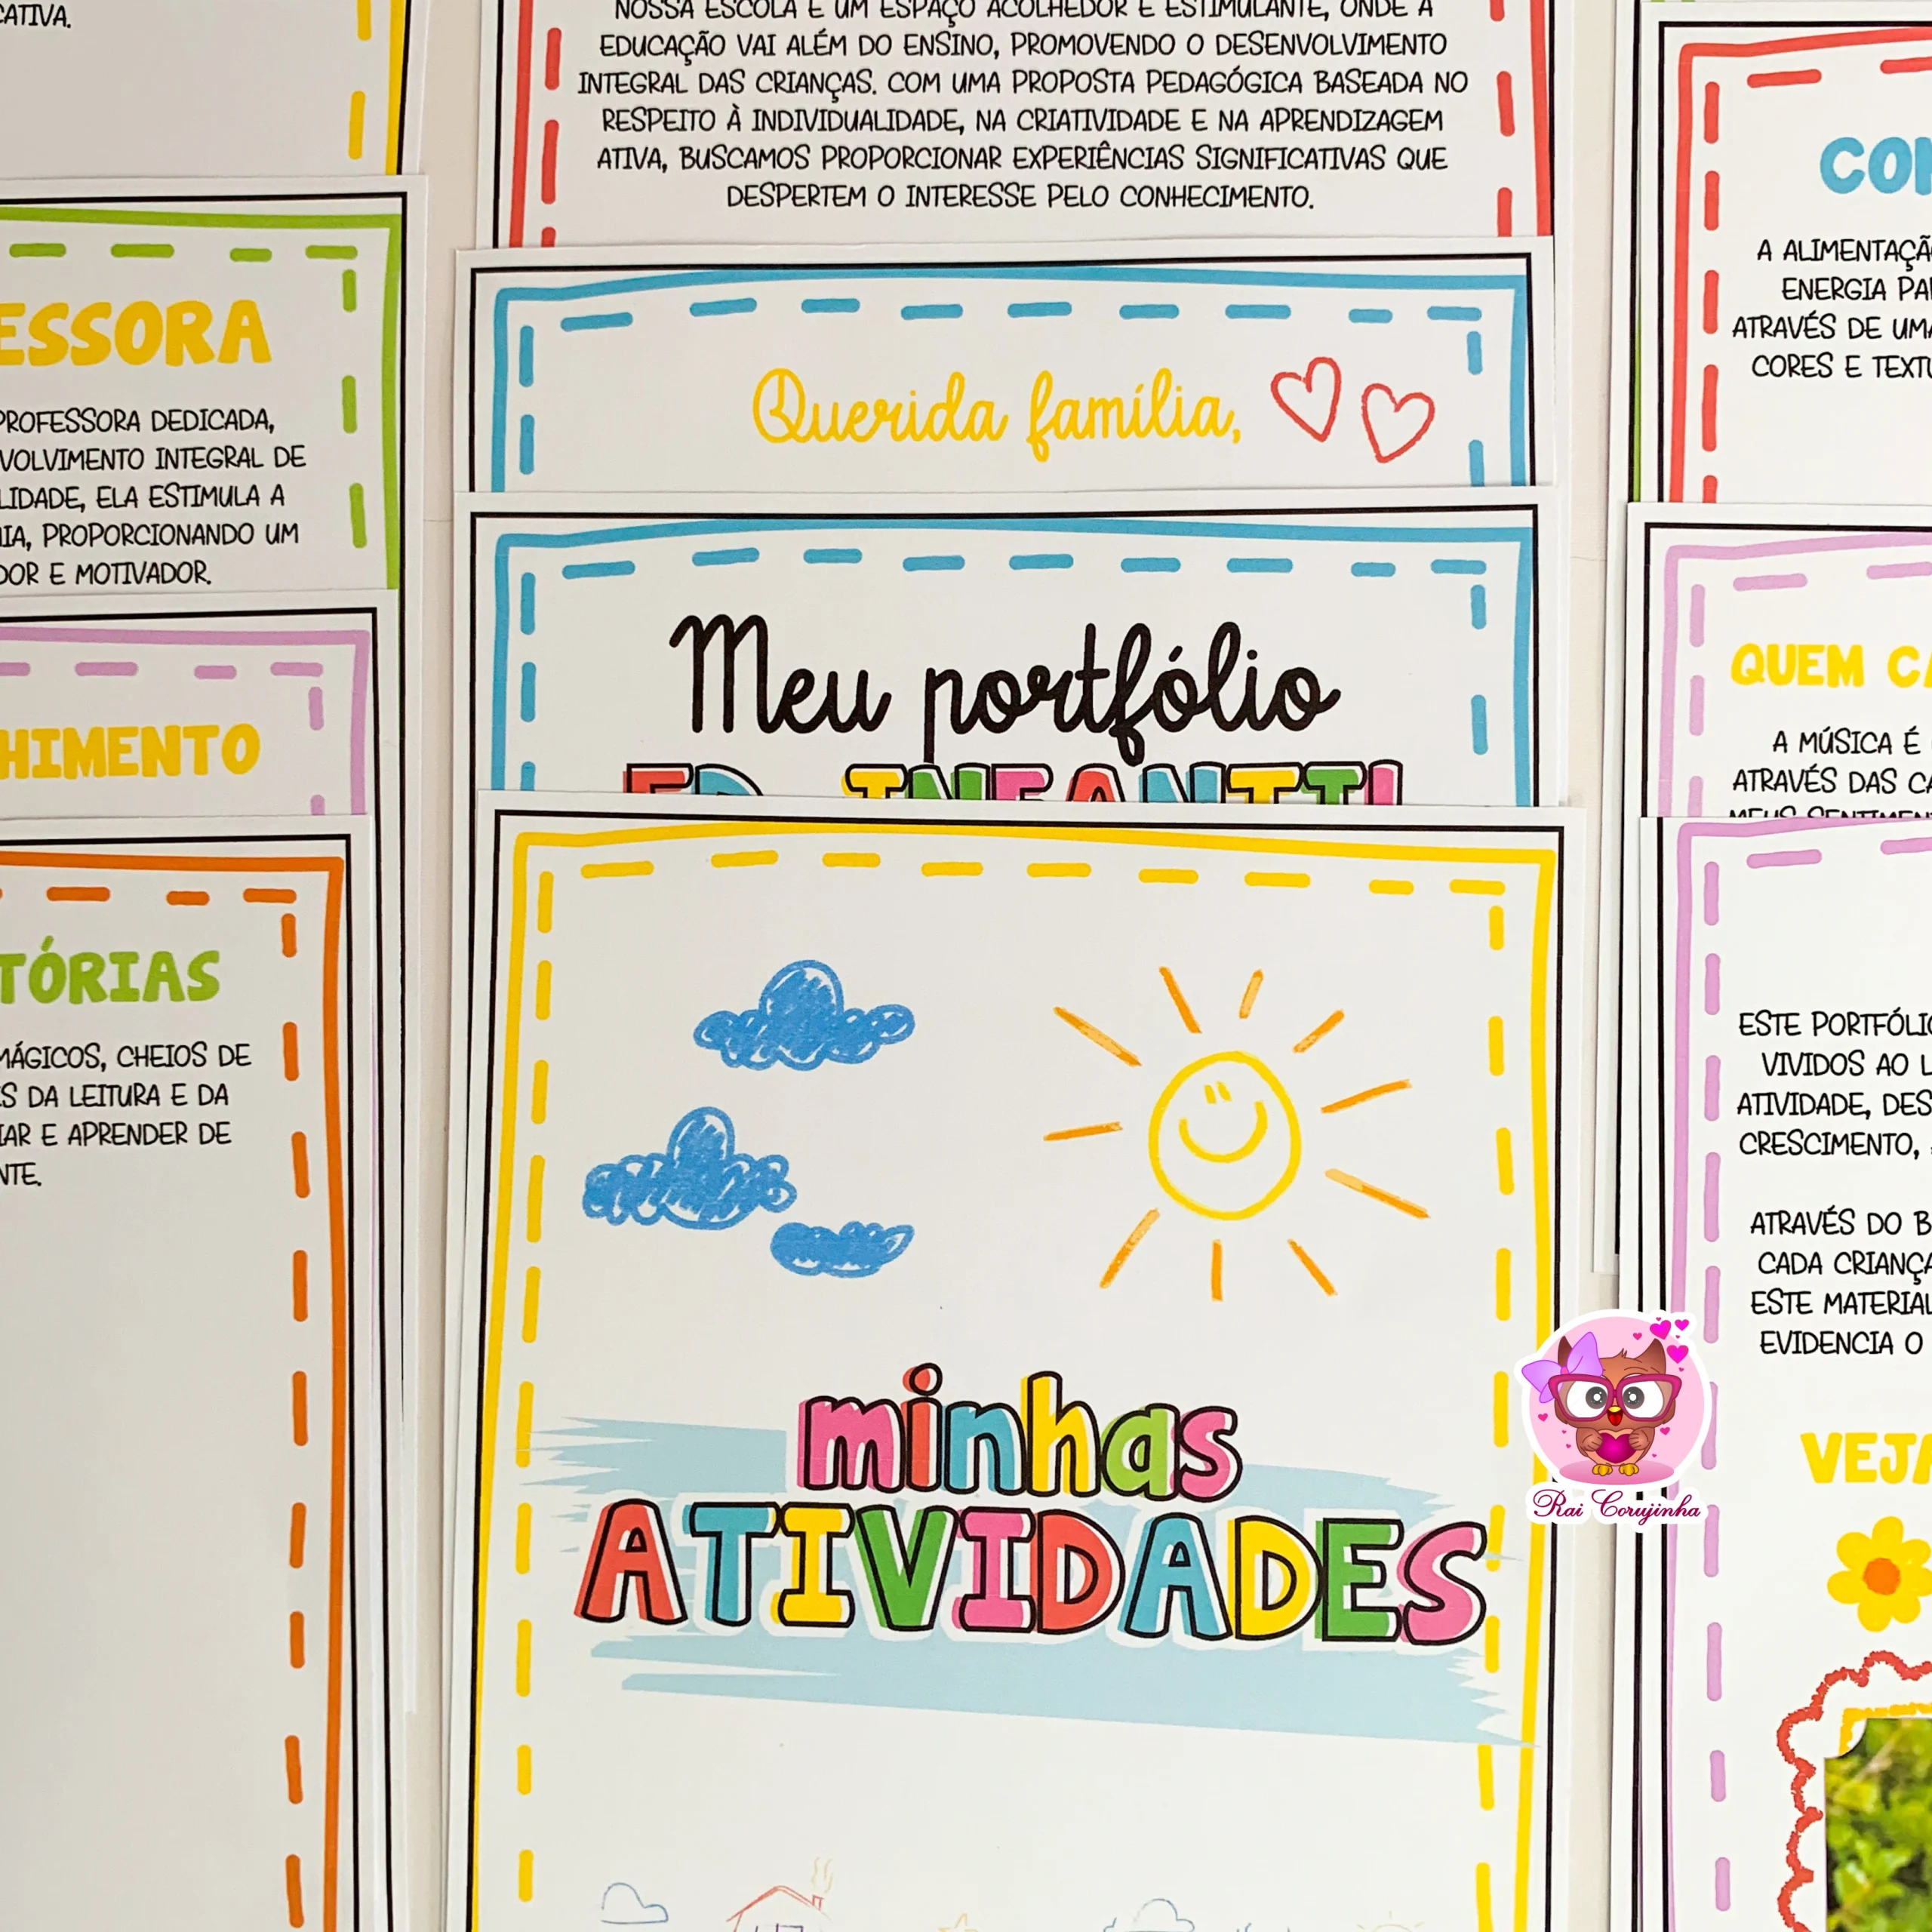 NOSSA ESCOLA É UM ESPAÇO ACOLHEDOR E ESTIMULANTE, ONDE A
EDUCAÇÃO VAI ALÉM DO ENSINO, PROMOVENDO O DESENVOLVIMENTO
INTEGRAL DAS CRIANÇAS. COM UMA PROPOSTA PEDAGÓGICA BASEADA NO
RESPEITO À INDIVIDUALIDADE, NA CRIATIVIDADE E NA APRENDIZAGEM
ATIVA, BUSCAMOS PROPORCIONAR EXPERIÊNCIAS SIGNIFICATIVAS QUE
DESPERTEM O INTERESSE PELO CONHECIMENTO.
Querida família,
Meu portfólio
ED. INFANTIL
minhas
ATIVIDADES
CATIVA.
ESSORA
PROFESSORA DEDICADA,
VOLVIMENTO INTEGRAL DE
LIDADE, ELA ESTIMULA A
IA, PROPORCIONANDO UM
DOR E MOTIVADOR.
HIMENTO
TÓRIAS
MÁGICOS, CHEIOS DE
S DA LEITURA E DA
IAR E APRENDER DE
NTE.
CO
A ALIMENTAÇÃ
ENERGIA PA
ATRAVÉS DE UMA
CORES E TEXTU
QUEM CA
A MÚSICA É
ATRAVÉS DAS CA
MEUS SENTIMEN
ESTE PORTFÓLIO
VIVIDOS AO L
ATIVIDADE, DES
CRESCIMENTO,
ATRAVÉS DO B
CADA CRIANÇA
ESTE MATERIAL
EVIDENCIA O
VEJA
Rai Corujinha